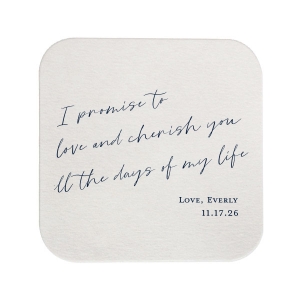 I promise to
love and cherish you
ll the days of my life
Love, Everly
11.17.26